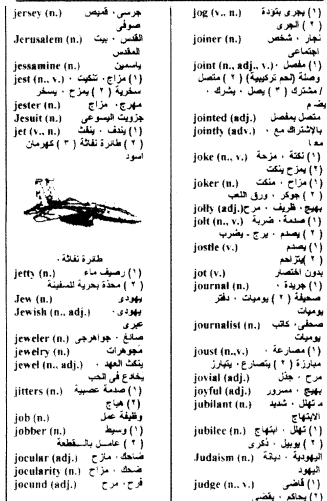 jersey (n.) جرسى · قميص
صوفى
Jerusalem (n.) القدس · بيت
المقدس
jessamine (n.) ياسمين
jest (n., v.) (١) مزاح · تنكيت ·
سخرية (٢) يمزح · يسخر
jester (n.) مهرج · مزاح
Jesuit (n.) جزويت اليسوعى
jet (v., n.) (١) يندف · ينفث
(٢) طائرة نفاثة (٣) كهرمان
اسود
طائرة نفاثة ·
jetty (n.) (١) رصيف ماء
(٢) محذة بحرية للسفينة
Jew (n.) يهودى
Jewish (n., adj.) يهودى ·
عبرى
jeweler (n.) صائغ · جواهرجى
jewelry (n.) مجوهرات
jewel (n., adj.) ينكث العهد ·
يخادع فى الحب
jitters (n.) (١) صدمة عصبية
(٢) هياج
job (n.) وظيفة عمل
jobber (n.) (١) وسيط
(٢) عامل بالقطعة
jocular (adj.) ضاحك · مازح
jocularity (n.) ضحك · مزاح
jocund (adj.) فرح · مرح
jog (v., n.) (١) يجرى بتؤدة
(٢) الجرى
joiner (n.) نجار · شخص
اجتماعى
joint (n., adj., v.) (١) مفصل ·
وصلة (لحم تركيبية) (٢) متصل
/ مشترك (٣) يصل · يشرك ·
يضم
jointed (adj.) متصل بمفصل
jointly (adv.) بالاشتراك مع ·
معا
joke (n., v.) (١) نكتة · مزحة
(٢) يمزح ينكت
joker (n.) (١) مزاح · منكت
(٢) جوكر · ورق اللعب
jolly (adj.) بهيج · ظريف · مرح
jolt (n., v.) (١) صدمة · ضربة
(٢) يصدم · يرج - يضرب
jostle (v.) (١) يصدم
(٢) يتزاحم
jot (v.) بدون اختصار
journal (n.) (١) جريدة ·
صحيفة (٢) يوميات · دفتر
يوميات
journalist (n.) صحفى · كاتب
يوميات
joust (n.,v.) (١) مصارعة ·
مبارزة (٢) يتصارع · يتبارز
jovial (adj.) مرح · جذل
joyful (adj.) بهيج · مسرور
jubilant (n.) متهلل · شديد
الابتهاج
jubilee (n.) (١) تهلل · ابتهاج
(٢) يوبيل · ذكرى
Judaism (n.) اليهودية · ديانة
اليهود
judge (n., v.) (١) قاضى
(٢) يحاكم · يقضى